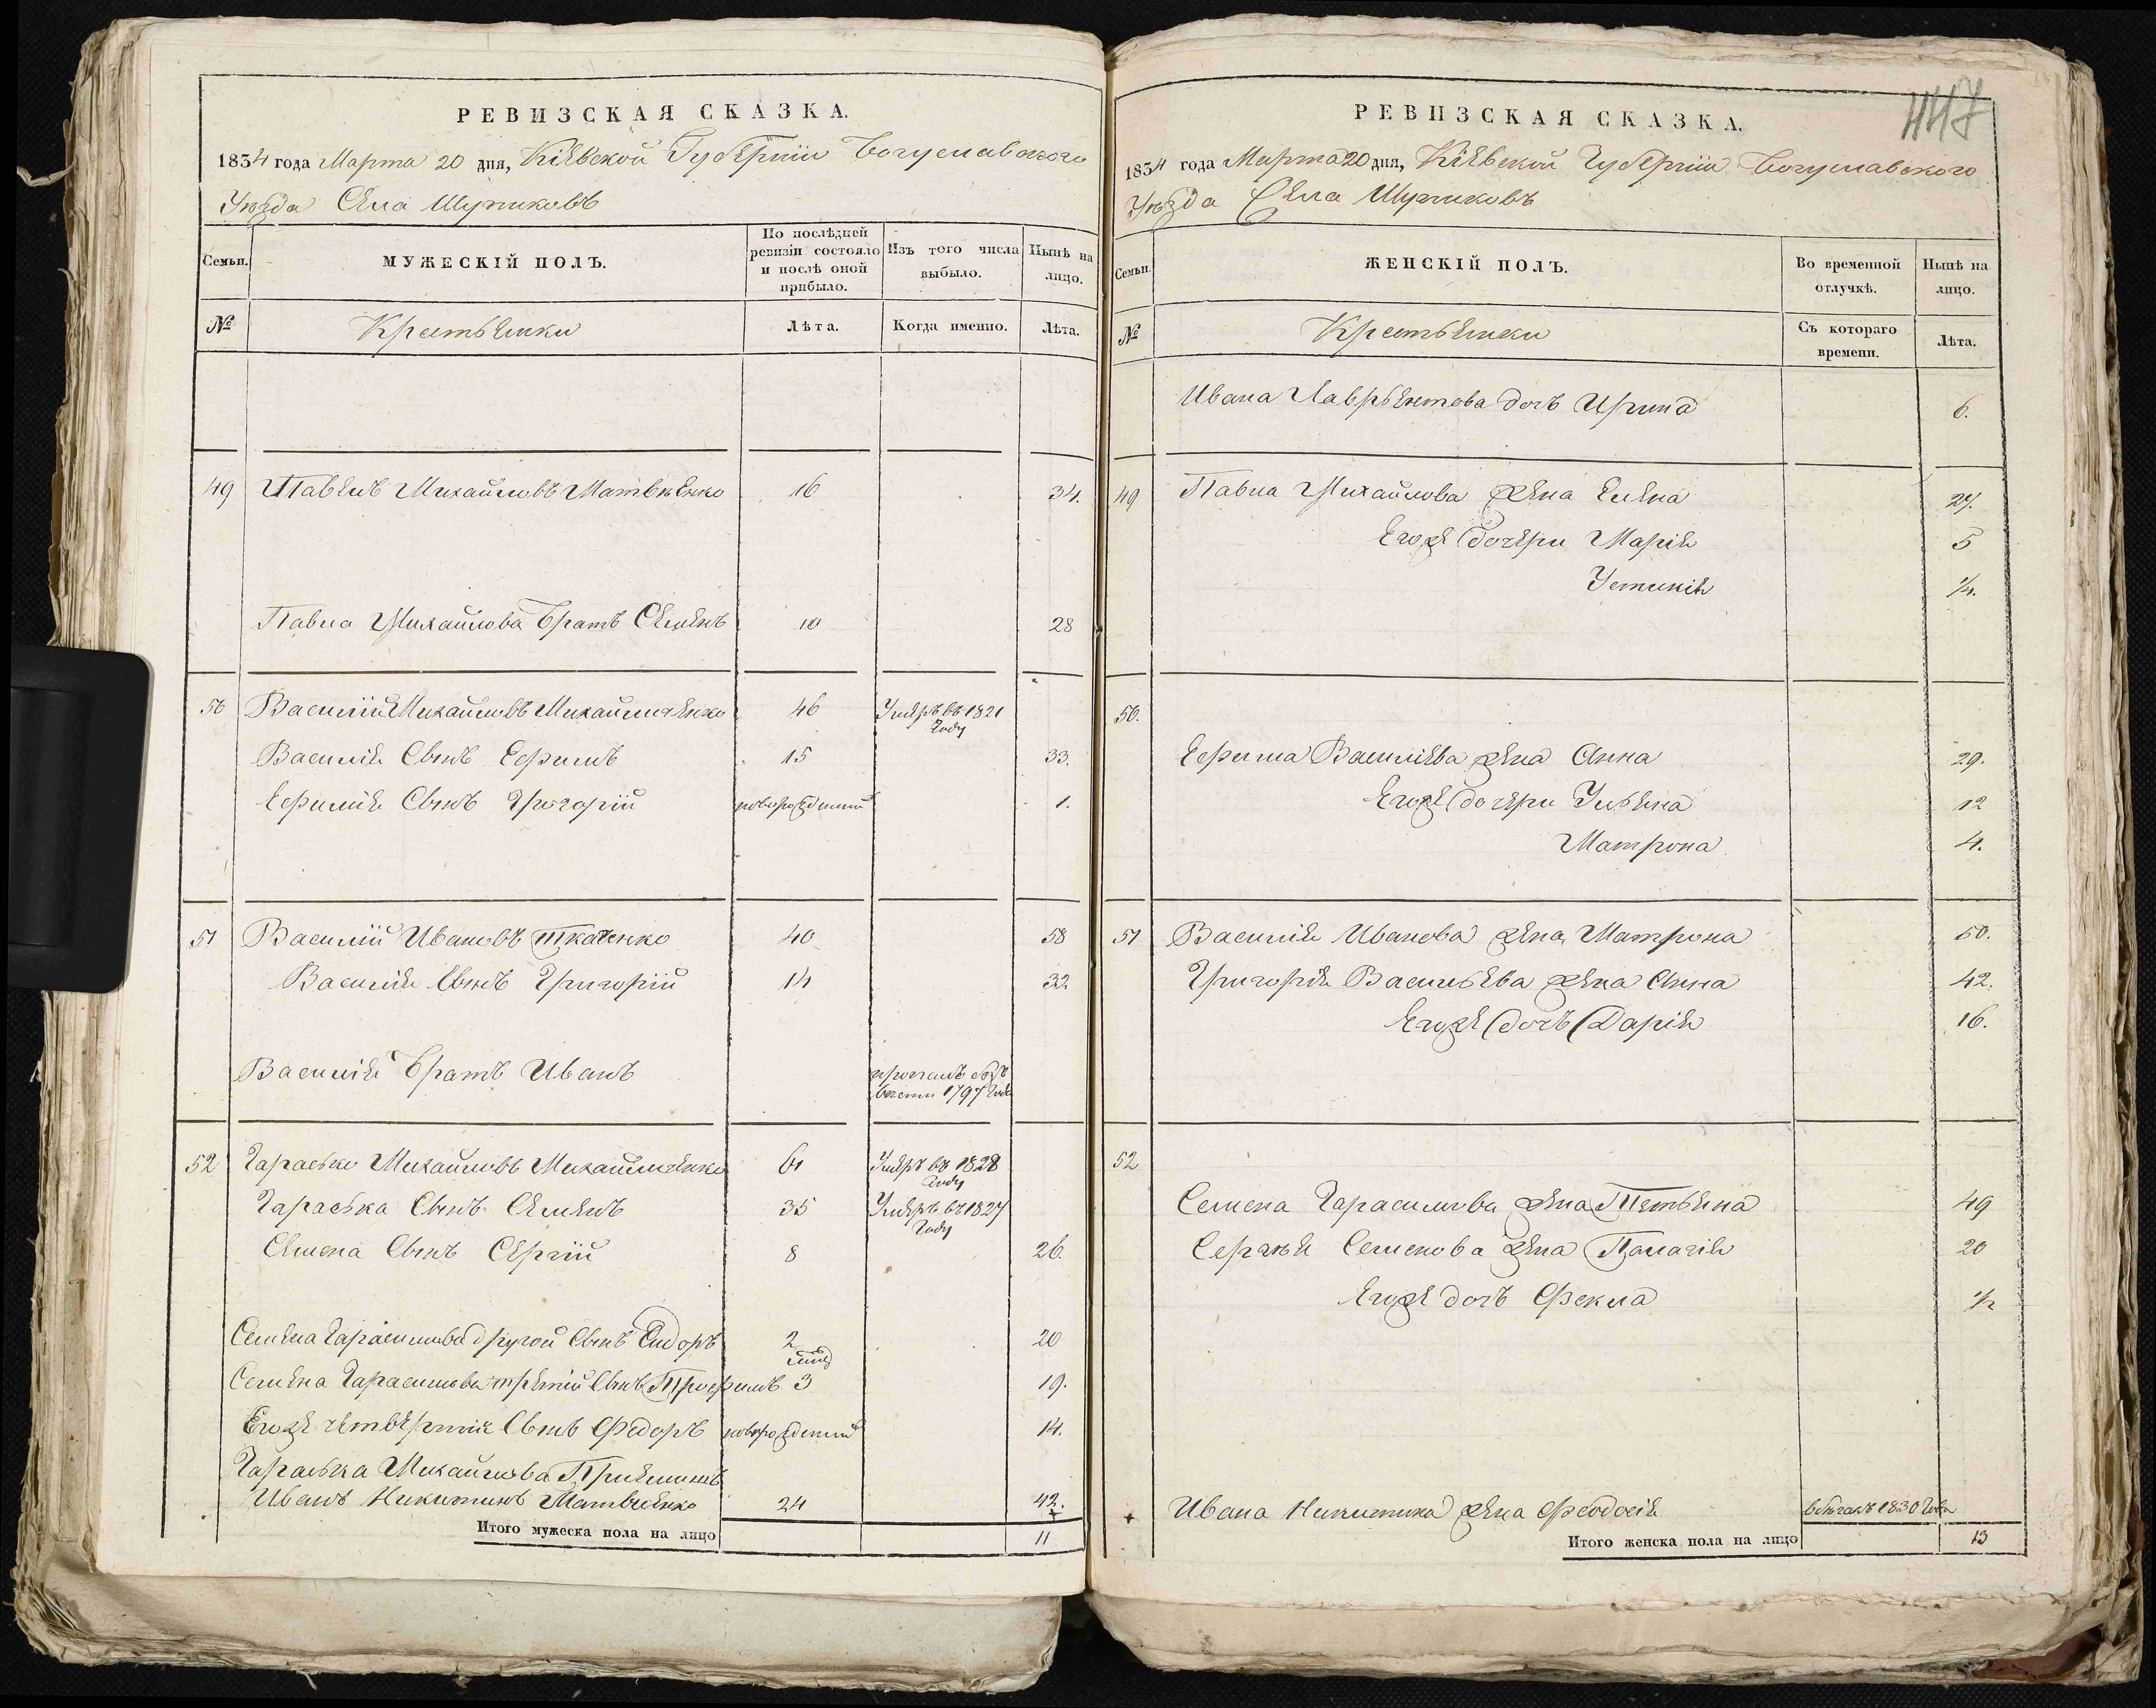 РЕВИЗСКАЯ СКАЗКА.
1834 года Марта 20 дня, Кіевской Губерніи Богуславского
Уѣзда Села Шупиковъ
Семьи.
МУЖЕСКІЙ ПОЛЪ.
По послѣдней ревизіи состояло и послѣ оной прибыло.
Изъ того числа выбыло.
Нынѣ на лицо.
№
Лѣта.
Когда именно.
Лѣта.
49 Павелъ Михайловъ Матвѣенко 16 34.
Павла Михайлова братъ Семенъ 10 28
50 Василій Михайловъ Михайличенко 46 Умеръ въ 1821 Году
Василія Сынъ Ефимъ 15 33.
Ефимія Сынъ Григорій новорожденный 1.
51 Василій Ивановъ Ткаченко 40 58
Василія Сынъ Григорій 14 32
Василія братъ Иванъ пропалъ безъ вести 1797 Года
52 Гарасько Михайловъ Михайличенко 61 Умеръ въ 1828 Году
Гараська Сынъ Семенъ 35 Умеръ въ 1827 Году
Семена Сынъ Сергій 8 26.
Семена Гарасимова другой Сынъ Сидоръ 2 20
Семена Гарасимова третій Сынъ Трофимъ 3 19.
Егоже четвертій Сынъ Федоръ новорожденный 14.
Гараська Михайлова Пріемишъ
Иванъ Никитинъ Матвіенко 24 42.
Итого мужеска пола на лицо 11
447
РЕВИЗСКАЯ СКАЗКА.
1834 года Марта 20 дня, Кіевской Губерніи Богуславского
Уѣзда Села Шупиковъ
Семьи.
ЖЕНСКІЙ ПОЛЪ.
Во временной отлучкѣ.
Нынѣ на лицо.
№
Крестьянки
Съ котораго времени.
Лѣта.
Ивана Лаврентова дочь Ирина 6.
49 Павла Михайлова жена Елена 27.
Егоже дочери Марія 5
Устинія 1/4.
50.
Ефима Василіева жена Анна 29.
Егоже дочери Ульяна 12
Матрона 4.
51 Василія Иванова жена Матрона 50.
Григорія Васильева жена Анна 42.
Егоже дочь Дарія 16.
52
Семена Гарасимова жена Татьяна 49
Сергѣя Семенова жена Палагія 20
Егоже дочь Фекла 1/2
Ивана Никитина жена Феодосія въ бѣгахъ 1830 Года
Итого женска пола на лицо 13